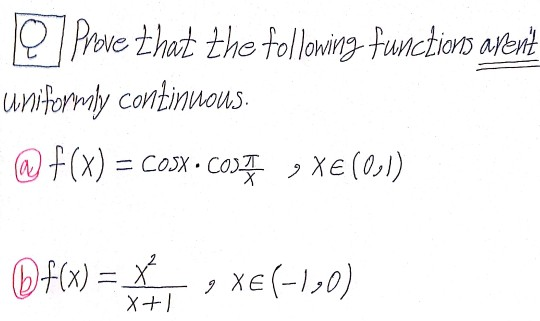 Q Prove that the following functions aren't
uniformly continuous.
a f(x) = cosx · cos π/x , x∈(0,1)
b f(x) = x²/(x+1) , x∈(-1,0)